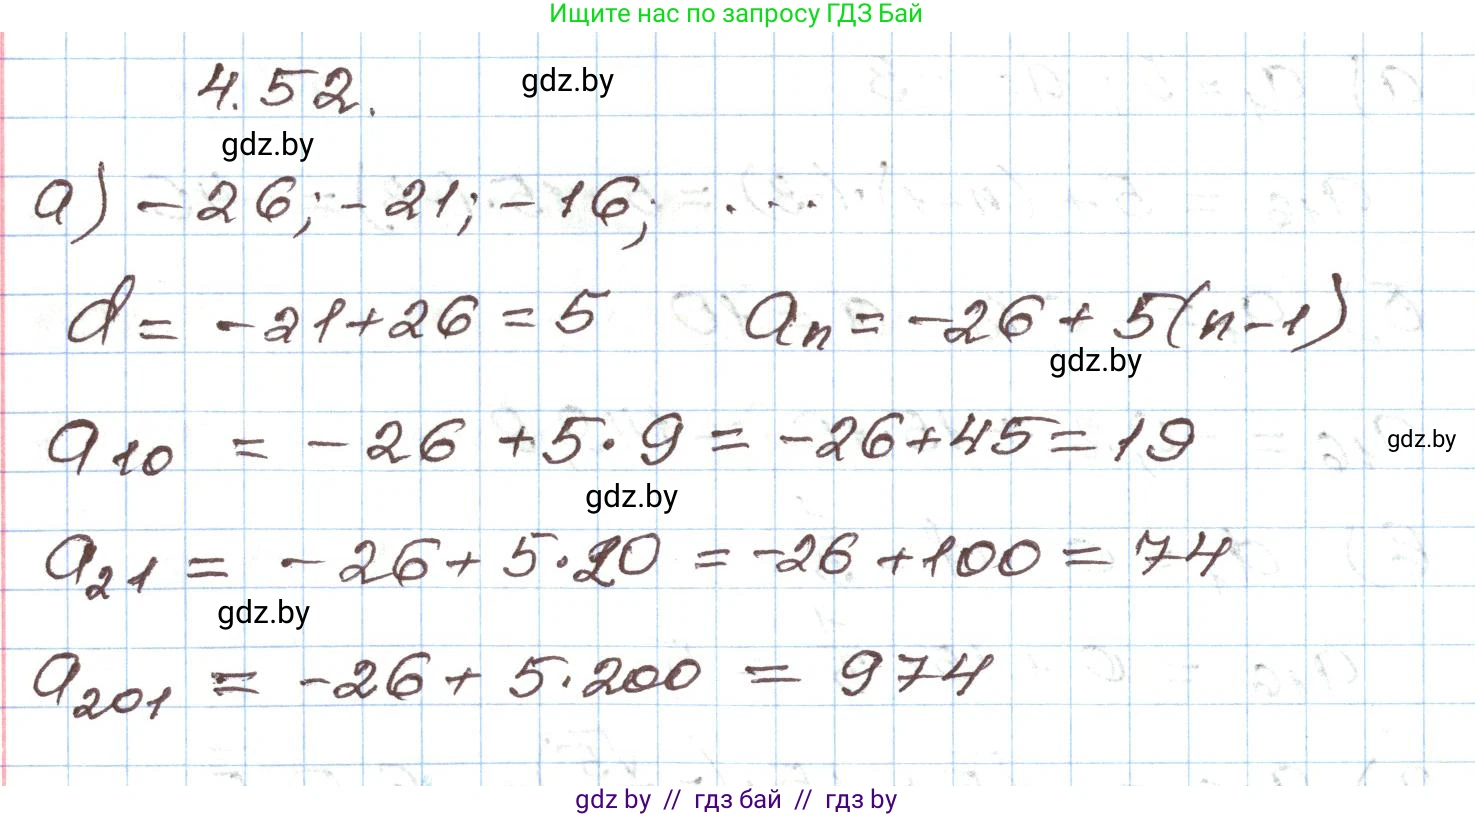 Ищите нас по запросу ГДЗ Бай
4.52.
gdz.by
gdz.by
а) -26; -21; -16; ...
d = -21+26 = 5 aₙ = -26 + 5(n-1)
gdz.by
a₁₀ = -26 + 5·9 = -26+45 = 19
gdz.by
gdz.by
a₂₁ = -26 + 5·20 = -26 + 100 = 74
gdz.by
a₂₀₁ = -26 + 5·200 = 974
gdz by // гдз бай // гдз by